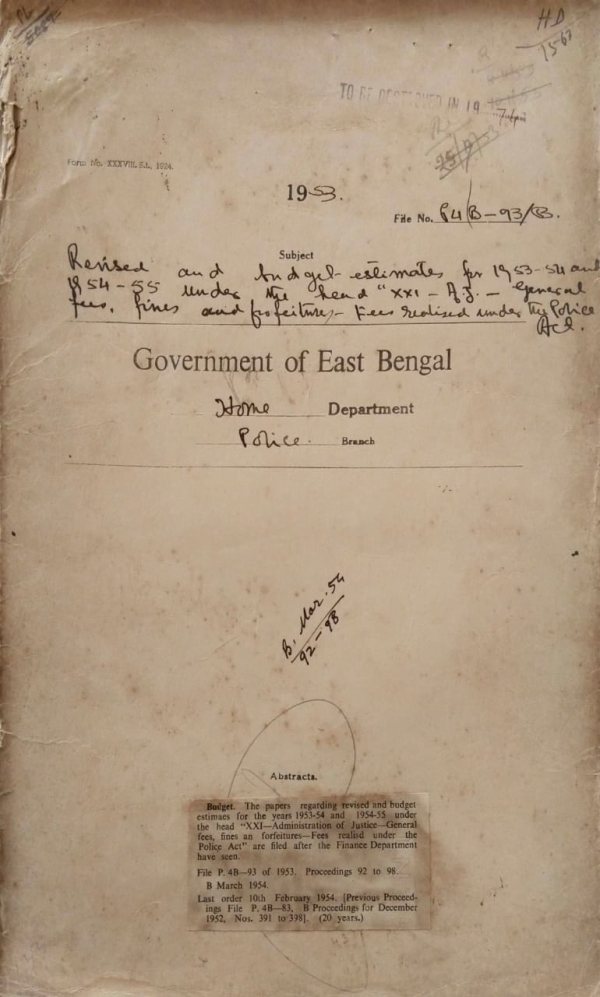 HD
15-67
TO BE DESTROYED IN 19
Form No. XXXVIII, S.L., 1924.
1953.
File No. P4B-93/53.
Subject
Revised and budget estimates for 1953-54 and
1954-55 under the head "XXI - A.J. - General
fees, fines and forfeitures - Fees realised under the Police
Act.
Government of East Bengal
Home Department
Police Branch
B. Mar. 54
92-98
Abstracts.
Budget. The papers regarding revised and budget
estimaes for the years 1953-54 and 1954-55 under
the head "XXI—Administration of Justice—General
fees, fines an forfeitures—Fees realisd under the
Police Act" are filed after the Finance Department
have seen.
File P. 4B—93 of 1953. Proceedings 92 to 98.
B March 1954.
Last order 10th February 1954. [Previous Proceed-
ings File P. 4B—83, B Proceedings for December
1952, Nos. 391 to 398]. (20 years.)